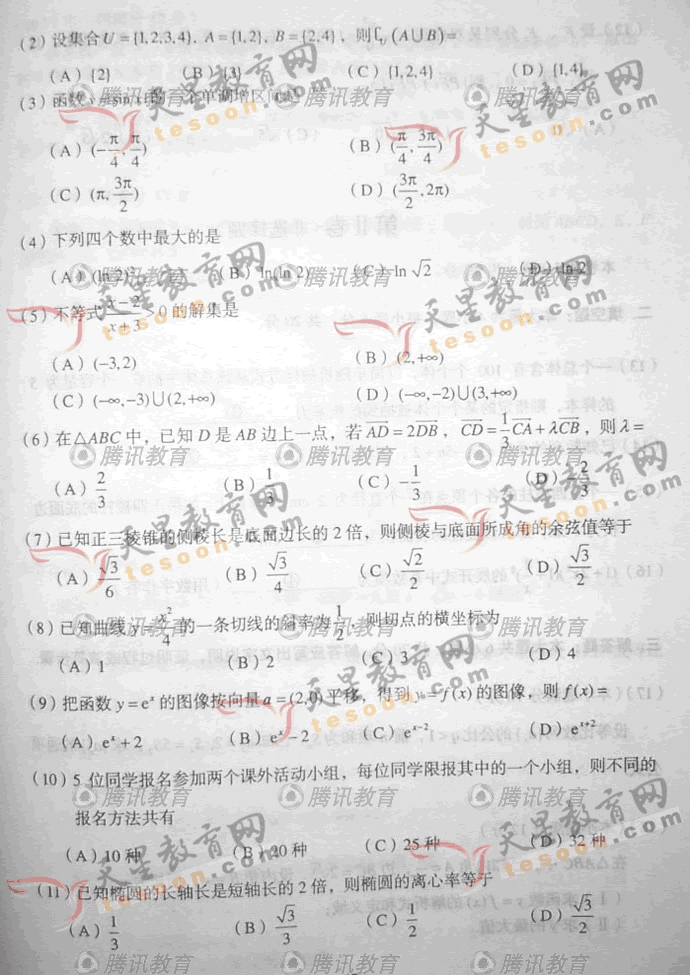 (2) 设集合U = {1,2,3,4}, A = {1,2}, B = {2,4}, 则∁U(A∪B)=
(A) {2} (B) {3} (C) {1,2,4} (D) {1,4}
(3) 函数
(A) (-π/4, π/4) (B) (π/4, 3π/4)
(C) (π, 3π/2) (D) (3π/2, 2π)
(4) 下列四个数中最大的是
(A) (ln 2) (B) ln(ln 2) (C) ln √2 (D) ln 2
(5) 不等式 (x-2)/(x+3) > 0 的解集是
(A) (-3,2) (B) (2,+∞)
(C) (-∞,-3)∪(2,+∞) (D) (-∞,-2)∪(3,+∞)
(6) 在△ABC 中, 已知 D 是 AB 边上一点, 若 AD = 2DB, CD = 1/3 CA + λCB, 则 λ =
(A) 2/3 (B) 1/3 (C) -1/3 (D) -2/3
(7) 已知正三棱锥的侧棱长是底面边长的 2 倍, 则侧棱与底面所成角的余弦值等于
(A) √3/6 (B) √3/4 (C) √2/2 (D) √3/2
(8) 已知曲线 y = x²/4 的一条切线的斜率为 1/2, 则切点的横坐标为
(A) 1 (B) 2 (C) 3 (D) 4
(9) 把函数 y = eˣ 的图像按向量 a = (2,0) 平移, 得到 y = f(x) 的图像, 则 f(x) =
(A) eˣ + 2 (B) eˣ - 2 (C) eˣ⁻² (D) eˣ⁺²
(10) 5 位同学报名参加两个课外活动小组, 每位同学限报其中的一个小组, 则不同的
报名方法共有
(A) 10 种 (B) 20 种 (C) 25 种 (D) 32 种
(11) 已知椭圆的长轴长是短轴长的 2 倍, 则椭圆的离心率等于
(A) 1/3 (B) √3/3 (C) 1/2 (D) √3/2
天星教育网
tesoon.com
腾讯教育